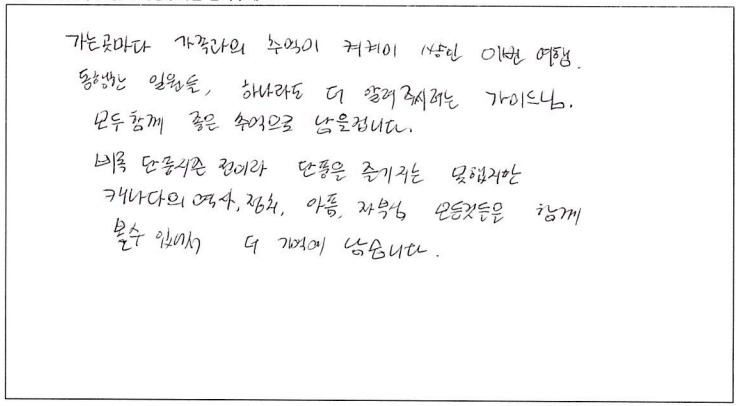 가는곳마다 가족과의 추억이 켜켜이 쌓인 이번 여행.
동행한 일원들, 하나라도 더 알려주시려는 가이드님.
모두함께 좋은 추억으로 남을겁니다.
비록 단풍시즌 전이라 단풍은 즐기지는 못했지만
캐나다의 역사, 정취, 아픔, 자부심 모든것들은 함께
볼수 있어서 더 기억에 남습니다.